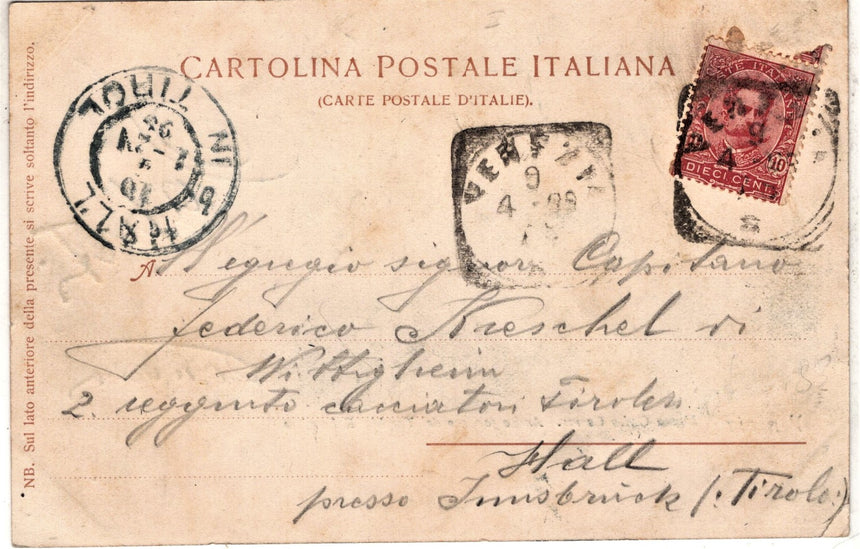 CARTOLINA POSTALE ITALIANA
(CARTE POSTALE D'ITALIE).
NB. Sul lato anteriore della presente si scrive soltanto l'indirizzo.
HALL IN TIROL
VENEZIA
9
4-99
DIECI CENT
10
A
egregio signor Capitano
Federico Kreschel di
Wittigheim
2. reggimto cacciatori Tirolesi
Hall
presso Innsbruck (: Tirolo :)